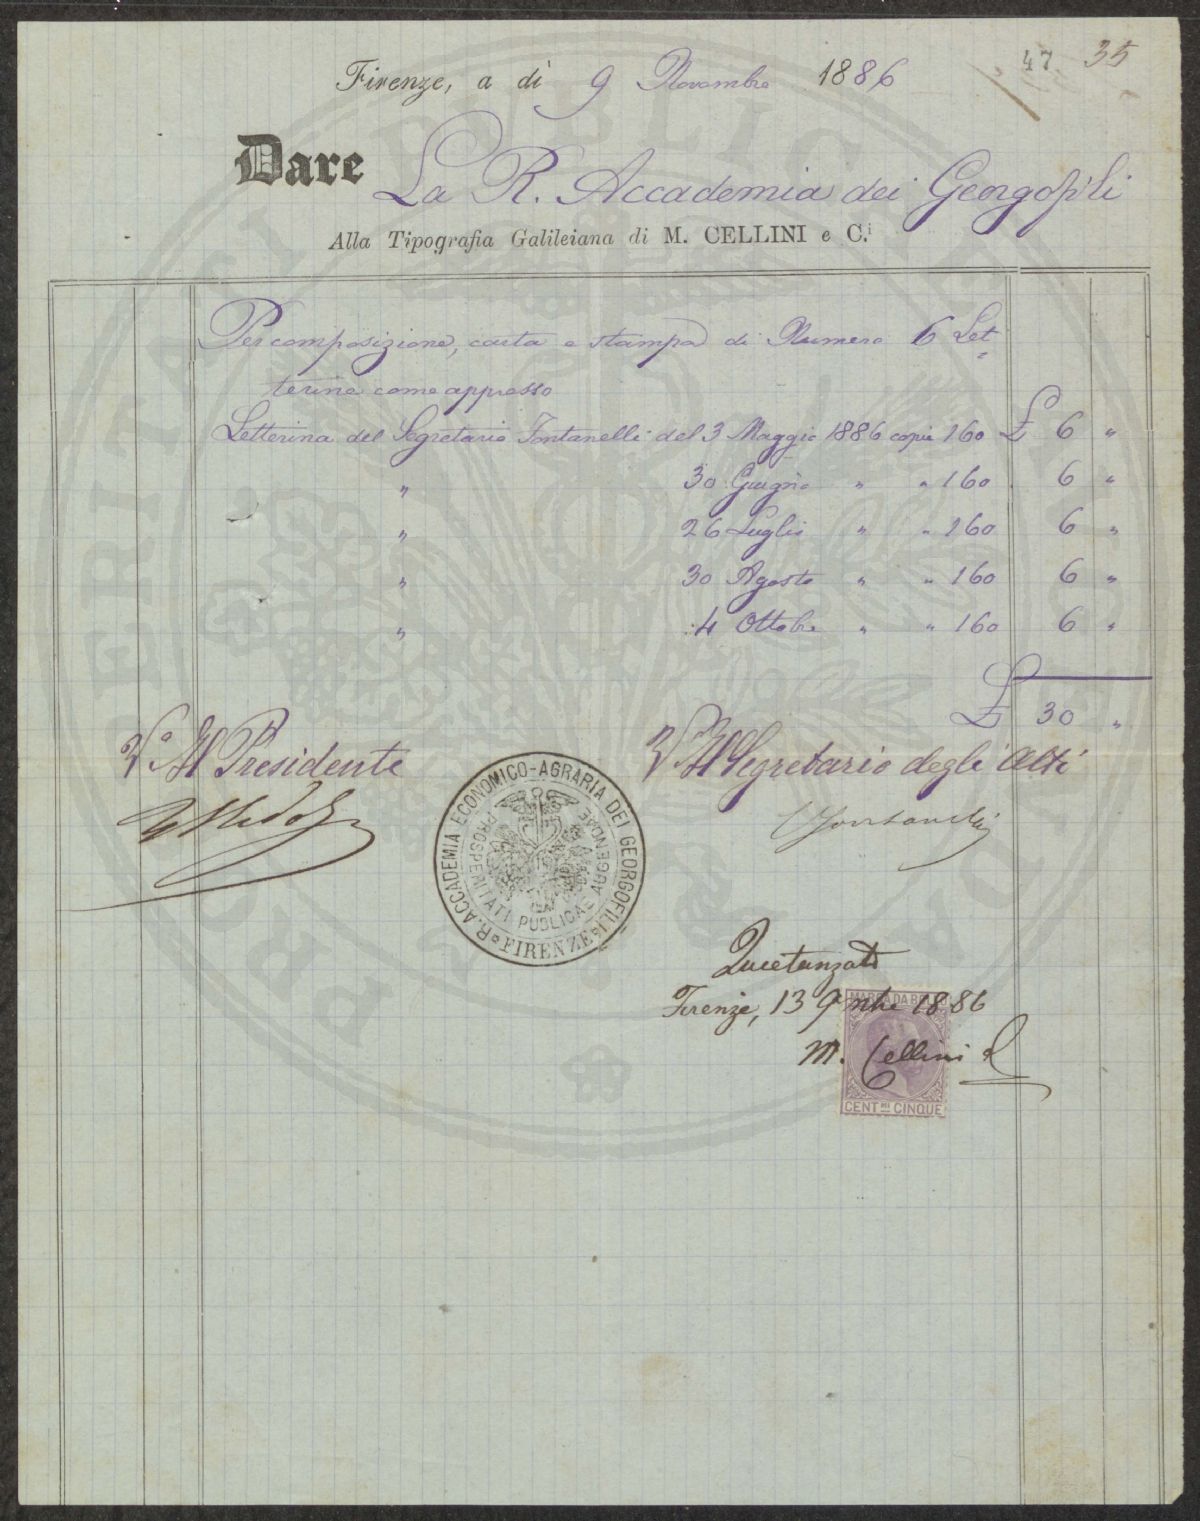 47 35
Firenze, a dì 9 Novembre 1886
Dare La R. Accademia dei Georgofili
Alla Tipografia Galileiana di M. CELLINI e C.i
Per composizione, carta e stampa di Numero 6 Let
terine come appresso
Letterina del Segretario Fontanelli del 3 Maggio 1886 copie 160 £ 6 "
" 30 Giugno " " 160 6 "
" 26 Luglio " " 160 6 "
" 30 Agosto " " 160 6 "
" 4 Ottobre " " 160 6 "
£ 30 "
V.° Il Presidente
V.° Il Segretario degli Atti
R. ACCADEMIA ECONOMICO-AGRARIA DEI GEORGOFILI
PROSPERITATI PUBLICAE AUGENDAE
FIRENZE
Quietanzato
Firenze, 13 9mbre 1886
M. Cellini
MARCA DA BOLLO
CENT.MI CINQUE
PROSPERITATI PUBLICAE AUGENDAE